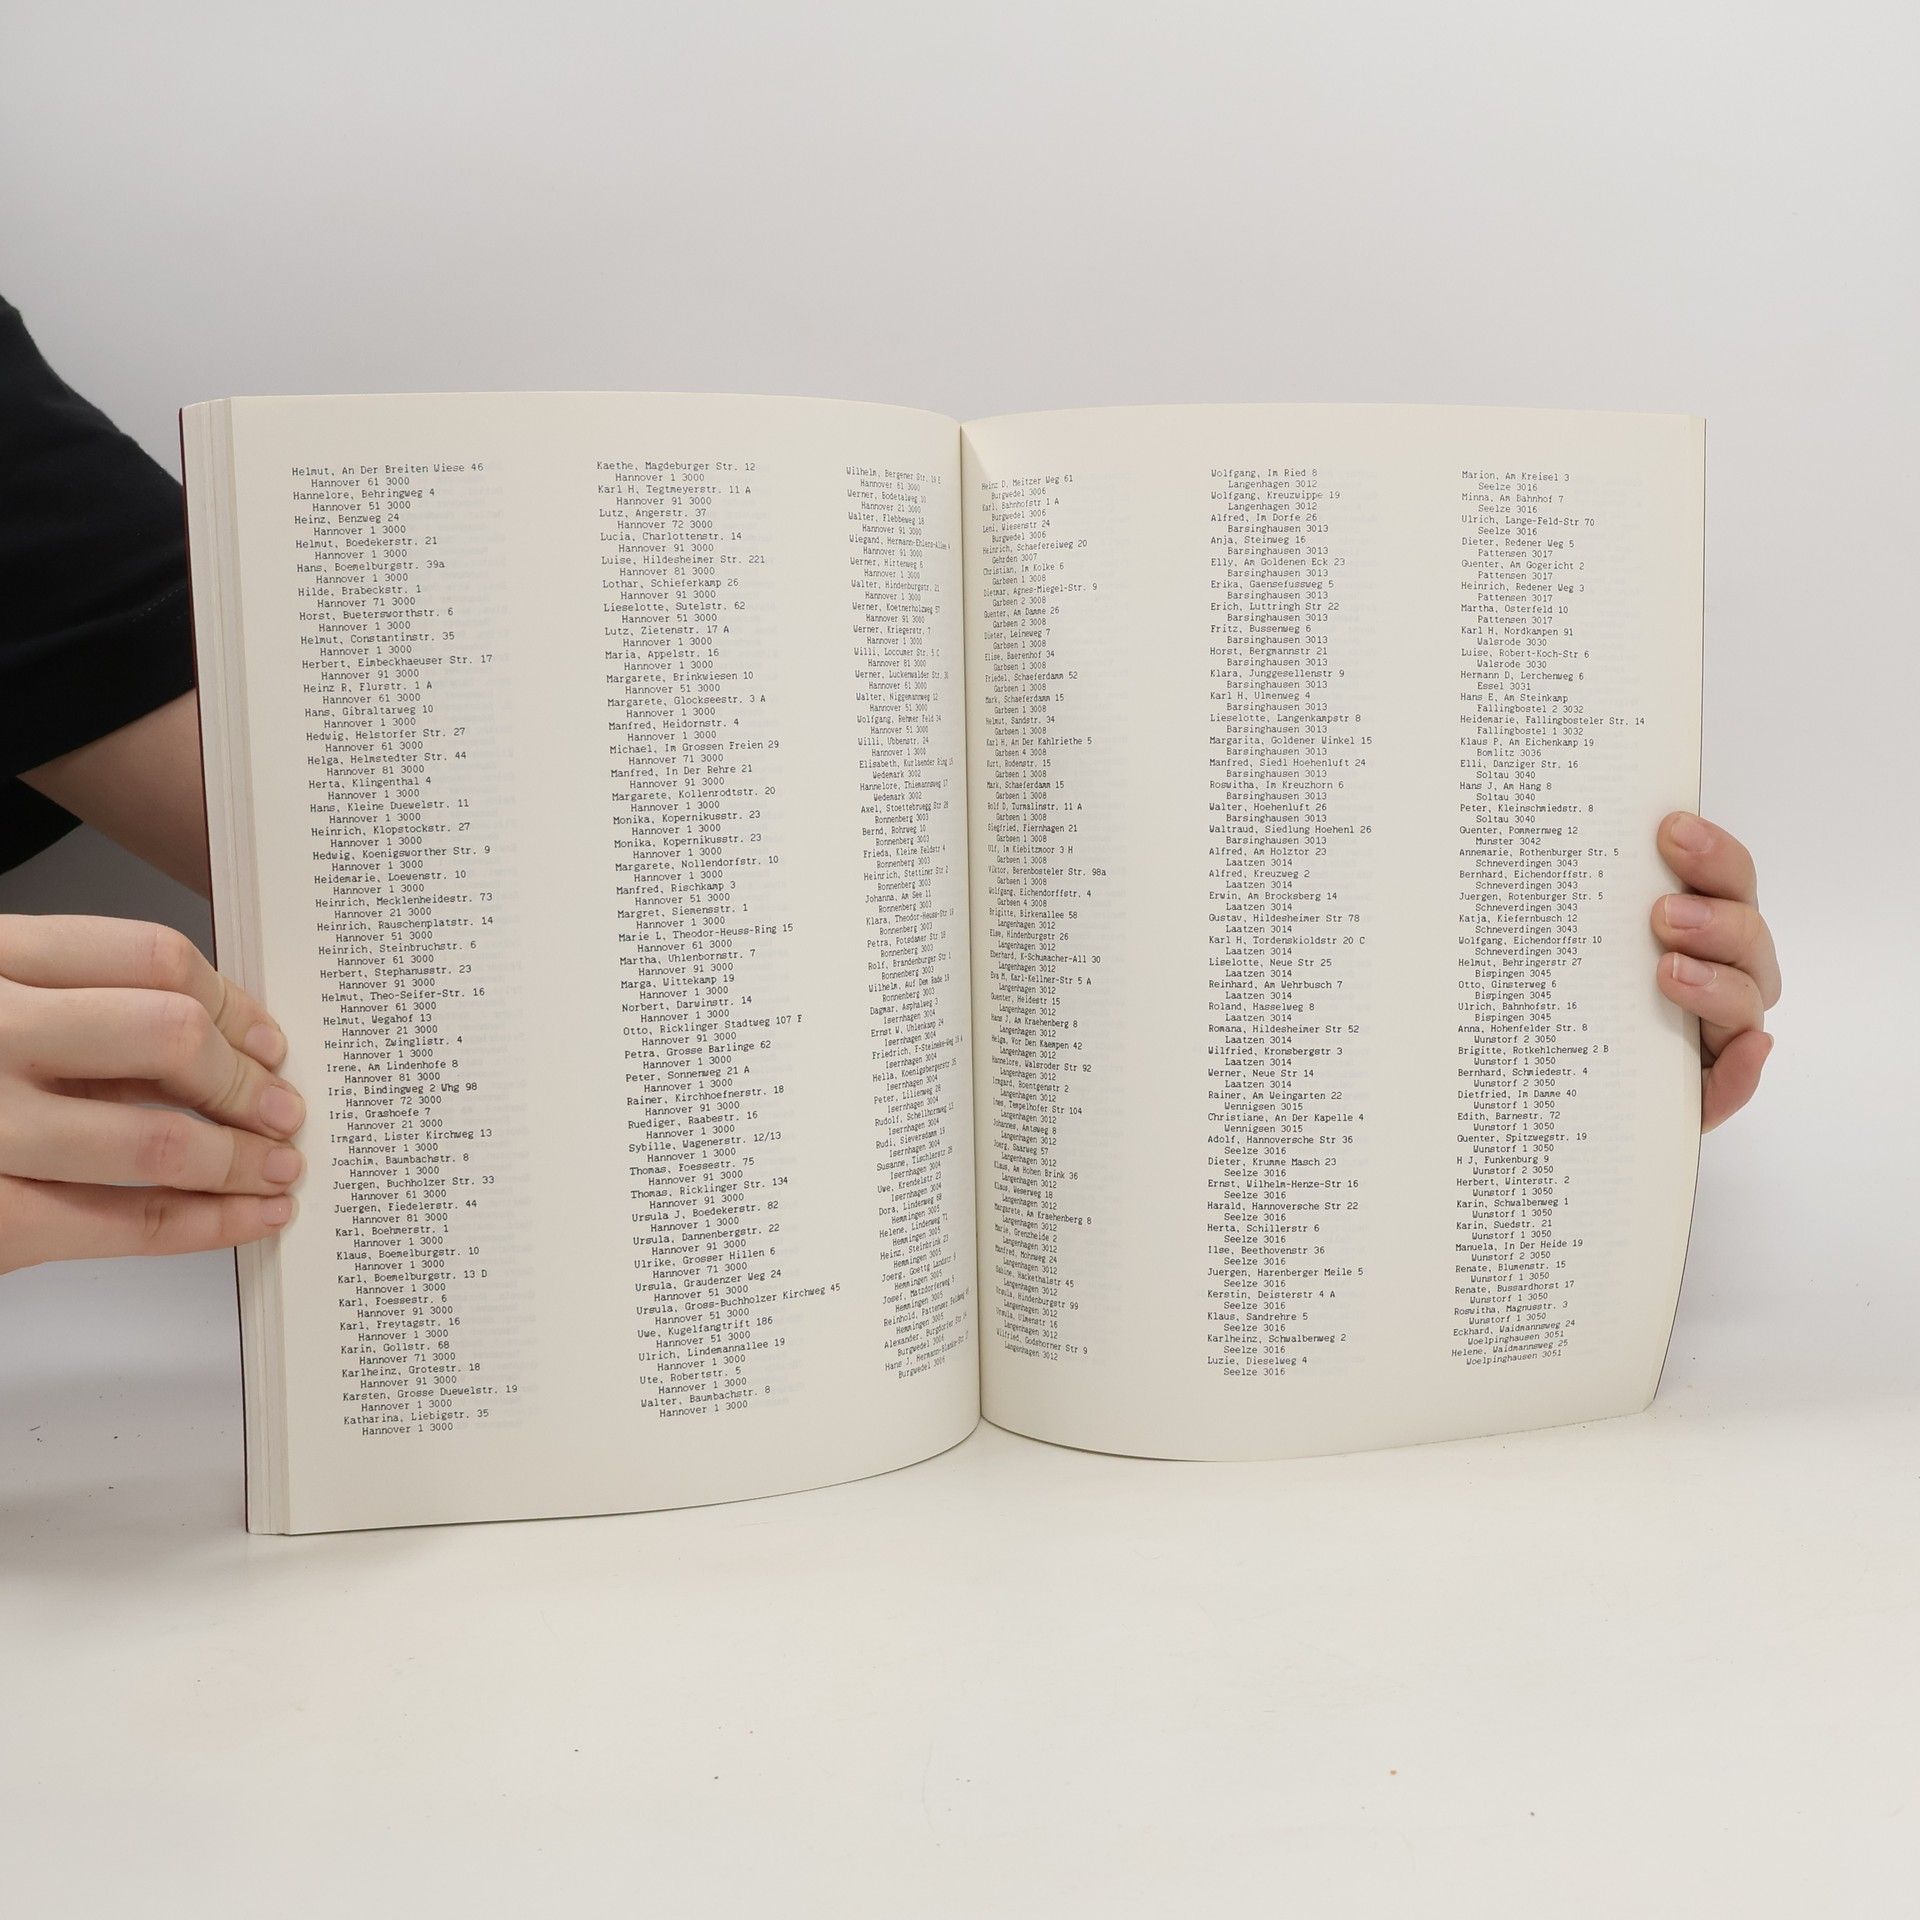 Helmut, An Der Breiten Wiese 46
Hannover 61 3000
Hannelore, Behringweg 4
Hannover 51 3000
Heinz, Benzweg 24
Hannover 1 3000
Helmut, Boedekerstr. 21
Hannover 1 3000
Hans, Boemelburgstr. 39a
Hannover 1 3000
Hilde, Brabeckstr. 1
Hannover 71 3000
Horst, Buetersworthstr. 6
Hannover 1 3000
Helmut, Constantinstr. 35
Hannover 1 3000
Herbert, Eimbeckhaeuser Str. 17
Hannover 91 3000
Heinz R, Flurstr. 1 A
Hannover 61 3000
Hans, Gibraltarweg 10
Hannover 1 3000
Hedwig, Helstorfer Str. 27
Hannover 61 3000
Helga, Helmstedter Str. 44
Hannover 81 3000
Herta, Klingenthal 4
Hannover 1 3000
Hans, Kleine Duewelstr. 11
Hannover 1 3000
Heinrich, Klopstockstr. 27
Hannover 1 3000
Hedwig, Koenigsworther Str. 9
Hannover 1 3000
Heidemarie, Loewenstr. 10
Hannover 1 3000
Heinrich, Mecklenheidestr. 73
Hannover 21 3000
Heinrich, Rauschenplatstr. 14
Hannover 51 3000
Heinrich, Steinbruchstr. 6
Hannover 61 3000
Herbert, Stephanusstr. 23
Hannover 91 3000
Helmut, Theo-Seifer-Str. 16
Hannover 61 3000
Helmut, Wegahof 13
Hannover 21 3000
Heinrich, Zwinglistr. 4
Hannover 1 3000
Irene, Am Lindenhofe 8
Hannover 81 3000
Iris, Bindingweg 2 Whg 98
Hannover 72 3000
Iris, Grashoefe 7
Hannover 21 3000
Irmgard, Lister Kirchweg 13
Hannover 1 3000
Joachim, Baumbachstr. 8
Hannover 1 3000
Juergen, Buchholzer Str. 33
Hannover 61 3000
Juergen, Fiedelerstr. 44
Hannover 81 3000
Karl, Boehmerstr. 1
Hannover 1 3000
Klaus, Boemelburgstr. 10
Hannover 1 3000
Karl, Boemelburgstr. 13 D
Hannover 1 3000
Karl, Foessestr. 6
Hannover 91 3000
Karl, Freytagstr. 16
Hannover 1 3000
Karin, Gollstr. 68
Hannover 71 3000
Karlheinz, Grotestr. 18
Hannover 91 3000
Karsten, Grosse Duewelstr. 19
Hannover 1 3000
Katharina, Liebigstr. 35
Hannover 1 3000
Kaethe, Magdeburger Str. 12
Hannover 1 3000
Karl H, Tegtmeyerstr. 11 A
Hannover 91 3000
Lutz, Angerstr. 37
Hannover 72 3000
Lucia, Charlottenstr. 14
Hannover 91 3000
Luise, Hildesheimer Str. 221
Hannover 81 3000
Lothar, Schieferkamp 26
Hannover 91 3000
Lieselotte, Sutelstr. 62
Hannover 51 3000
Lutz, Zietenstr. 17 A
Hannover 1 3000
Maria, Appelstr. 16
Hannover 1 3000
Margarete, Brinkwiesen 10
Hannover 51 3000
Margarete, Glockseestr. 3 A
Hannover 1 3000
Manfred, Heidornstr. 4
Hannover 1 3000
Michael, Im Grossen Freien 29
Hannover 71 3000
Manfred, In Der Rehre 21
Hannover 91 3000
Margarete, Kollenrodtstr. 20
Hannover 1 3000
Monika, Kopernikusstr. 23
Hannover 1 3000
Monika, Kopernikusstr. 23
Hannover 1 3000
Margarete, Nollendorfstr. 10
Hannover 1 3000
Manfred, Rischkamp 3
Hannover 51 3000
Margret, Siemensstr. 1
Hannover 1 3000
Marie L, Theodor-Heuss-Ring 15
Hannover 61 3000
Martha, Uhlenbornstr. 7
Hannover 91 3000
Marga, Wittekamp 19
Hannover 1 3000
Norbert, Darwinstr. 14
Hannover 1 3000
Otto, Ricklinger Stadtweg 107 F
Hannover 91 3000
Petra, Grosse Barlinge 62
Hannover 1 3000
Peter, Sonnenweg 21 A
Hannover 1 3000
Rainer, Kirchhoefnerstr. 18
Hannover 91 3000
Ruediger, Raabestr. 16
Hannover 1 3000
Sybille, Wagenerstr. 12/13
Hannover 1 3000
Thomas, Foessestr. 75
Hannover 91 3000
Thomas, Ricklinger Str. 134
Hannover 91 3000
Ursula J, Boedekerstr. 82
Hannover 1 3000
Ursula, Dannenbergstr. 22
Hannover 91 3000
Ulrike, Grosser Hillen 6
Hannover 71 3000
Ursula, Graudenzer Weg 24
Hannover 51 3000
Ursula, Gross-Buchholzer Kirchweg 45
Hannover 51 3000
Uwe, Kugelfangtrift 186
Hannover 51 3000
Ulrich, Lindemannallee 19
Hannover 1 3000
Ute, Robertstr. 5
Hannover 1 3000
Walter, Baumbachstr. 8
Hannover 1 3000
Wilhelm, Bergener Str. 19 E
Hannover 61 3000
Werner, Bodetalweg 10
Hannover 21 3000
Walter, Flebbeweg 18
Hannover 91 3000
Wiegand, Hermann-Ehlers-Allee 4
Hannover 91 3000
Werner, Hirtenweg 6
Hannover 1 3000
Walter, Hindenburgstr. 21
Hannover 1 3000
Werner, Koetnerholzweg 57
Hannover 91 3000
Werner, Kriegerstr. 7
Hannover 1 3000
Willi, Loccumer Str. 5 C
Hannover 81 3000
Werner, Luckenwalder Str. 30
Hannover 61 3000
Walter, Niggemannweg 12
Hannover 51 3000
Wolfgang, Rehmer Feld 34
Hannover 51 3000
Willi, Ubbenstr. 24
Hannover 1 3000
Elisabeth, Kurlaender Ring 15
Wedemark 3002
Hannelore, Thiemannsweg 17
Wedemark 3002
Axel, Stoettebruegg Str 28
Ronnenberg 3003
Bernd, Rohrweg 10
Ronnenberg 3003
Frieda, Kleine Feldstr 4
Ronnenberg 3003
Heinrich, Stettiner Str 2
Ronnenberg 3003
Johanna, Am See 11
Ronnenberg 3003
Klara, Theodor-Heuss-Str
Ronnenberg 3003
Petra, Potsdamer Str 18
Ronnenberg 3003
Rolf, Brandenburger Str 1
Ronnenberg 3003
Wilhelm, Auf Dem Rade 19
Ronnenberg 3003
Dagmar, Asphalweg 3
Isernhagen 3004
Ernst W, Uhlenkamp 24
Isernhagen 3004
Friedrich, F-Steineke-Weg
Isernhagen 3004
Hella, Koenigsbergerstr 35
Isernhagen 3004
Peter, Lilienweg 28
Isernhagen 3004
Rudolf, Schellhornweg 13
Isernhagen 3004
Rudi, Sieversdamm 19
Isernhagen 3004
Susanne, Tischlerstr 26
Isernhagen 3004
Uwe, Krendelstr 23
Isernhagen 3004
Dora, Lindenweg 68
Hemmingen 3005
Helene, Lindenweg 71
Hemmingen 3005
Heinz, Steinbrink 23
Hemmingen 3005
Joerg, Goettg Landstr
Hemmingen 3005
Josef, Matzdorferweg 5
Hemmingen 3005
Reinhold, Pattenser Feldweg
Hemmingen 3005
Alexander, Burgdorfer Str
Burgwedel 3006
Hans J, Hermann-Blancke-Str
Burgwedel 3006
Heinz D, Meitzer Weg 61
Burgwedel 3006
Karl, Bahnhofstr 1 A
Burgwedel 3006
Leni, Wiesenstr 24
Burgwedel 3006
Heinrich, Schaefereiweg 20
Gehrden 3007
Christian, Im Kolke 6
Garbsen 1 3008
Dietmar, Agnes-Miegel-Str. 9
Garbsen 2 3008
Guenter, Am Damme 26
Garbsen 2 3008
Dieter, Leineweg 7
Garbsen 1 3008
Elise, Baerenhof 34
Garbsen 1 3008
Friedel, Schaeferdamm 52
Garbsen 1 3008
Mark, Schaeferdamm 15
Garbsen 1 3008
Helmut, Sandstr. 34
Garbsen 1 3008
Karl H, An Der Kahlriethe 5
Garbsen 4 3008
Kurt, Rodenstr. 15
Garbsen 1 3008
Mark, Schaeferdamm 15
Garbsen 1 3008
Rolf D, Turmalinstr. 11 A
Garbsen 1 3008
Siegfried, Fiernhagen 21
Garbsen 1 3008
Ulf, Im Kiebitzmoor 3 H
Garbsen 1 3008
Viktor, Berenbosteler Str. 98a
Garbsen 1 3008
Wolfgang, Eichendorffstr. 4
Garbsen 4 3008
Brigitte, Birkenallee 58
Langenhagen 3012
Else, Hindenburgstr 26
Langenhagen 3012
Eberhard, K-Schumacher-All 30
Langenhagen 3012
Eva M, Karl-Kellner-Str 5 A
Langenhagen 3012
Guenter, Heidestr 15
Langenhagen 3012
Hans J, Am Kraehenberg 8
Langenhagen 3012
Helga, Vor Den Kaempen 42
Langenhagen 3012
Hannelore, Walsroder Str 92
Langenhagen 3012
Irmgard, Roentgenstr 2
Langenhagen 3012
Ines, Tempelhofer Str 104
Langenhagen 3012
Johannes, Amtsweg 8
Langenhagen 3012
Joerg, Saarweg 57
Langenhagen 3012
Klaus, Am Hohen Brink 36
Langenhagen 3012
Klaus, Weserweg 18
Langenhagen 3012
Margarete, Am Kraehenberg 8
Langenhagen 3012
Marie, Grenzheide 2
Langenhagen 3012
Manfred, Mohnweg 24
Langenhagen 3012
Sabine, Hackethalstr 45
Langenhagen 3012
Ursula, Hindenburgstr 99
Langenhagen 3012
Ursula, Ulmenstr 16
Langenhagen 3012
Wilfried, Godshorner Str 9
Langenhagen 3012
Wolfgang, Im Ried 8
Langenhagen 3012
Wolfgang, Kreuzwippe 19
Langenhagen 3012
Alfred, Im Dorfe 26
Barsinghausen 3013
Anja, Steinweg 16
Barsinghausen 3013
Elly, Am Goldenen Eck 23
Barsinghausen 3013
Erika, Gaensefussweg 5
Barsinghausen 3013
Erich, Luttringh Str 22
Barsinghausen 3013
Fritz, Bussenweg 6
Barsinghausen 3013
Horst, Bergmannstr 21
Barsinghausen 3013
Klara, Junggesellenstr 9
Barsinghausen 3013
Karl H, Ulmenweg 4
Barsinghausen 3013
Lieselotte, Langenkampstr 8
Barsinghausen 3013
Margarita, Goldener Winkel 15
Barsinghausen 3013
Manfred, Siedl Hoehenluft 24
Barsinghausen 3013
Roswitha, Im Kreuzhorn 6
Barsinghausen 3013
Walter, Hoehenluft 26
Barsinghausen 3013
Waltraud, Siedlung Hoehenl 26
Barsinghausen 3013
Alfred, Am Holztor 23
Laatzen 3014
Alfred, Kreuzweg 2
Laatzen 3014
Erwin, Am Brocksberg 14
Laatzen 3014
Gustav, Hildesheimer Str 78
Laatzen 3014
Karl H, Tordenskioldstr 20 C
Laatzen 3014
Liselotte, Neue Str 25
Laatzen 3014
Reinhard, Am Wehrbusch 7
Laatzen 3014
Roland, Hasselweg 8
Laatzen 3014
Romana, Hildesheimer Str 52
Laatzen 3014
Wilfried, Kronsbergstr 3
Laatzen 3014
Werner, Neue Str 14
Laatzen 3014
Rainer, Am Weingarten 22
Wennigsen 3015
Christiane, An Der Kapelle 4
Wennigsen 3015
Adolf, Hannoversche Str 36
Seelze 3016
Dieter, Krumme Masch 23
Seelze 3016
Ernst, Wilhelm-Henze-Str 16
Seelze 3016
Harald, Hannoversche Str 22
Seelze 3016
Herta, Schillerstr 6
Seelze 3016
Ilse, Beethovenstr 36
Seelze 3016
Juergen, Harenberger Meile 5
Seelze 3016
Kerstin, Deisterstr 4 A
Seelze 3016
Klaus, Sandrehre 5
Seelze 3016
Karlheinz, Schwalbenweg 2
Seelze 3016
Luzie, Dieselweg 4
Seelze 3016
Marion, Am Kreisel 3
Seelze 3016
Minna, Am Bahnhof 7
Seelze 3016
Ulrich, Lange-Feld-Str 70
Seelze 3016
Dieter, Redener Weg 5
Pattensen 3017
Guenter, Am Gogericht 2
Pattensen 3017
Heinrich, Redener Weg 3
Pattensen 3017
Martha, Osterfeld 10
Pattensen 3017
Karl H, Nordkampen 91
Walsrode 3030
Luise, Robert-Koch-Str 6
Walsrode 3030
Hermann D, Lerchenweg 6
Essel 3031
Hans E, Am Steinkamp
Fallingbostel 2 3032
Heidemarie, Fallingbosteler Str. 14
Fallingbostel 1 3032
Klaus P, Am Eichenkamp 19
Bomlitz 3036
Elli, Danziger Str. 16
Soltau 3040
Hans J, Am Hang 8
Soltau 3040
Peter, Kleinschmiedstr. 8
Soltau 3040
Guenter, Pommernweg 12
Munster 3042
Annemarie, Rothenburger Str. 5
Schneverdingen 3043
Bernhard, Eichendorffstr. 8
Schneverdingen 3043
Juergen, Rotenburger Str. 5
Schneverdingen 3043
Katja, Kiefernbusch 12
Schneverdingen 3043
Wolfgang, Eichendorffstr 10
Schneverdingen 3043
Helmut, Behringerstr 27
Bispingen 3045
Otto, Ginsterweg 6
Bispingen 3045
Ulrich, Bahnhofstr. 16
Bispingen 3045
Anna, Hohenfelder Str. 8
Wunstorf 2 3050
Brigitte, Rotkehlchenweg 2 B
Wunstorf 1 3050
Bernhard, Schmiedestr. 4
Wunstorf 2 3050
Dietfried, Im Damme 40
Wunstorf 1 3050
Edith, Barnestr. 72
Wunstorf 1 3050
Guenter, Spitzwegstr. 19
Wunstorf 1 3050
H J, Funkenburg 9
Wunstorf 2 3050
Herbert, Winterstr. 2
Wunstorf 1 3050
Karin, Schwalbenweg 1
Wunstorf 1 3050
Karin, Suedstr. 21
Wunstorf 1 3050
Manuela, In Der Heide 19
Wunstorf 2 3050
Renate, Blumenstr. 15
Wunstorf 1 3050
Renate, Bussardhorst 17
Wunstorf 1 3050
Roswitha, Magnusstr. 3
Wunstorf 1 3050
Eckhard, Waldmannsweg 24
Woelpinghausen 3051
Helene, Waldmannsweg 25
Woelpinghausen 3051